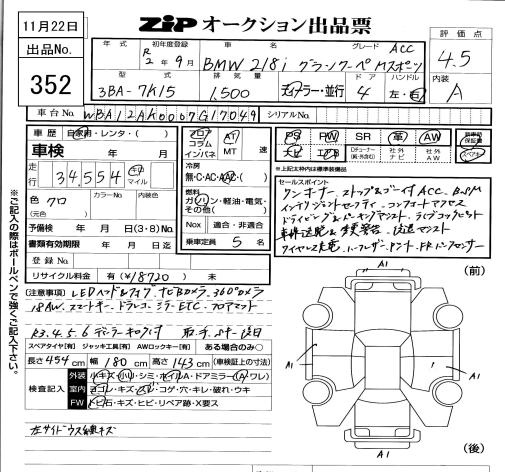 11月22日
ZIP オークション出品票
出品No.
352
評価点
4.5
内装
A
年式 初年度登録 車名 グレード
R2年9月 BMW 218i グランクーペ Mスポーツ ACC
型式 排気量 ドア ハンドル
3BA-7K15 1,500 ディーラー・並行 4 左・右
車台No. WBA12AK0007G17049 シリアルNo.
車歴 自家用・レンタ・( )
車検 年 月
走行 34,554 km マイル
色 クロ カラーNo. 内装色
(元色) ( ) ( )
予備検 年 月 日(3・8)No.
書類有効期限 年 月 日迄
登録No.
リサイクル料金 有(¥18720) 未
フロア コラム インパネ
AT MT 速
冷房
無・C・AC・AAC・( )
燃料
ガソリン・軽油・電気・その他( )
Nox 適合・非適合
乗車定員 5 名
PS PW SR 革 AW
ナビ エアB 社外ナビ 社外AW
新車時保証書
スペアキー
※上記太枠内は標準装備品
セールスポイント
ワンオーナー ストップ&ゴー付ACC BSM
インテリジェントセーフティ コンフォートアクセス
ドライビング&パーキングアシスト ライブコックピット
車線逸脱&変更警告 後退アシスト
ワイヤレス充電
(注意事項) LEDヘッドライト ナビBカメラ 360°カメラ
18AW スマートキー ドラレコ ミラーETC フロアマット
R3.4.5.6 ディーラーキロク付 取説 Sキー後日
スペアタイヤ[有] ジャッキ工具[有] AWロックキー[有] ある場合のみ○
長さ 454 cm 幅 180 cm 高さ 143 cm (車検証上の寸法)
検査記入
外装 小キズ・小凹・シミ・ホイルA・ドアミラー(A・ワレ)
室内 ヨゴレ・キズ・スレ・コゲ・穴・キレ・破れ・ウキ
FW トビ石・キズ・ヒビ・リペア跡・X要ス
左サイドウス線キズ
(前)
A1
A1
A1
1
A1
(後)
※ご記入の際はボールペンで強くご記入下さい。